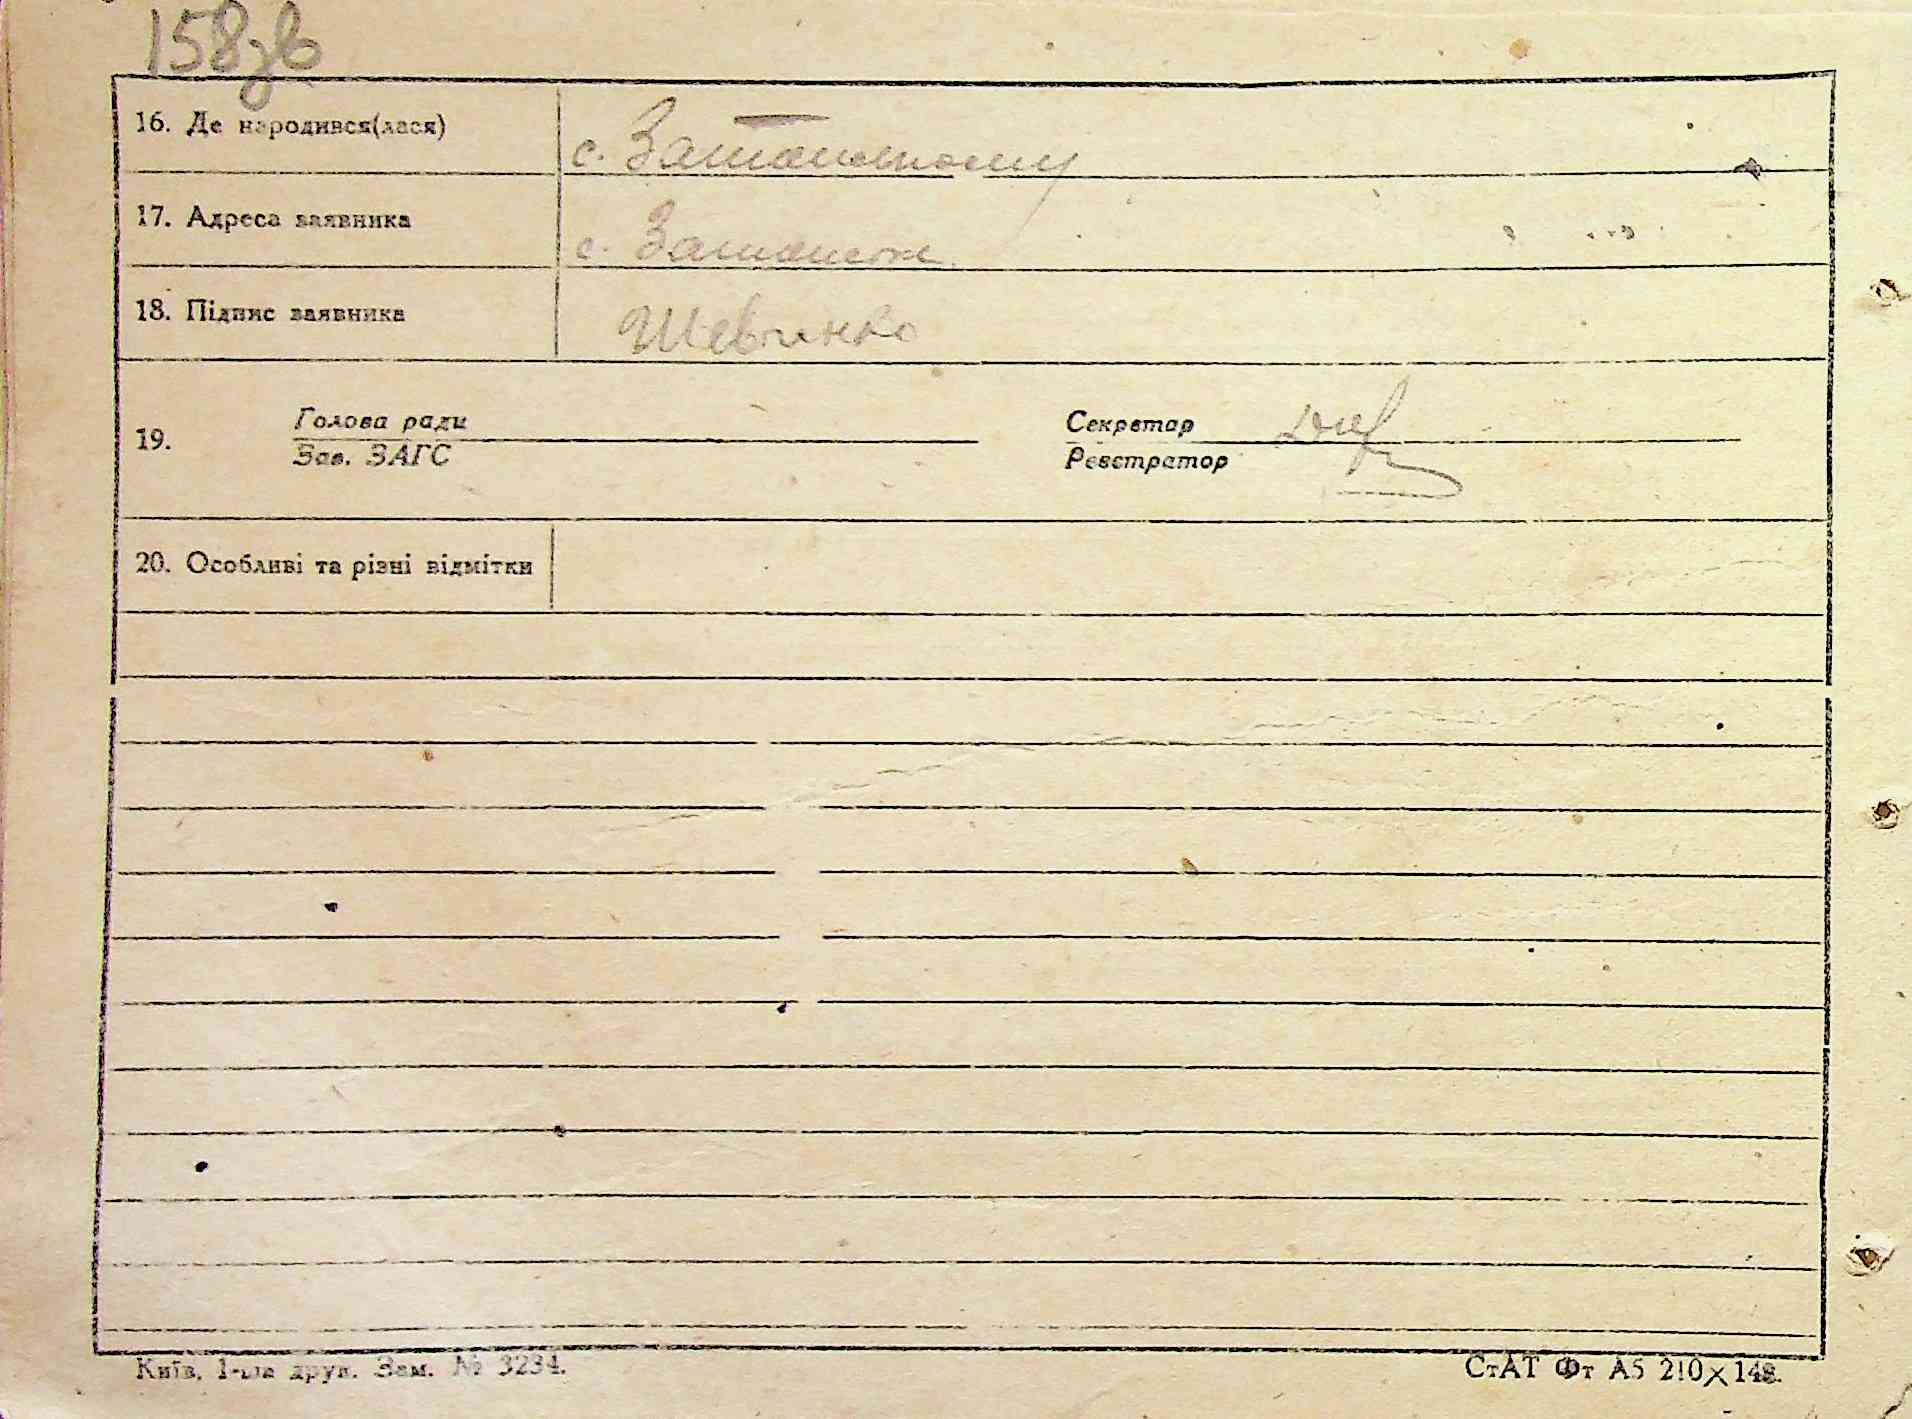 158зв
16. Де народився(лася)
с.
17. Адреса заявника
с.
18. Підпис заявника Шевченко
19. Голова ради Секретар
Зав. ЗАГС Реєстратор
20. Особливі та різні відмітки
Київ, 1-ша друк. Зам. № 3234. СтАТ Фт А5 210×148.